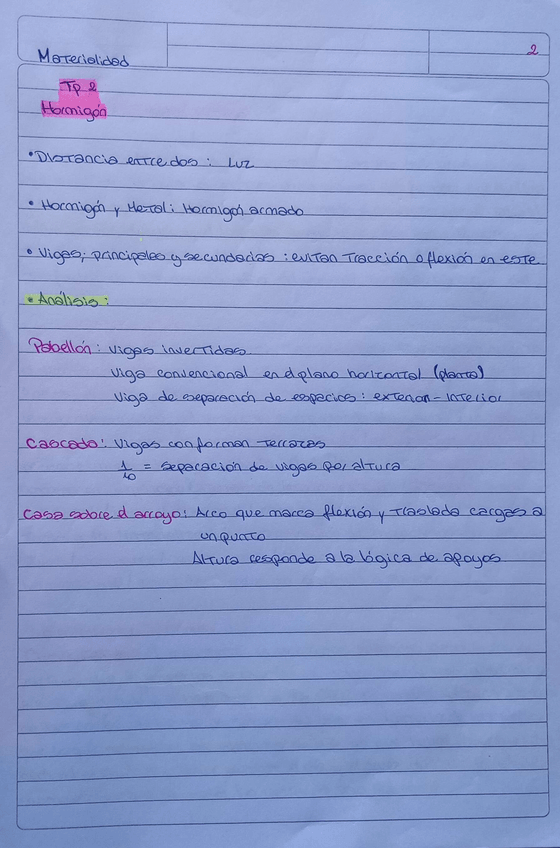 2
Materialidad
Tp 2
Hormigón
• Distancia entre dos : Luz
• Hormigón y Metal : Hormigón armado
• Vigas; principales y secundarias : evitan tracción o flexión en este
• Análisis :
Pabellón : Vigas invertidas.
Viga convencional en el plano horizontal (planta)
Viga de separación de espacios : exterior - interior
Cascada : Vigas conforman terrazas
1/10 = separación de vigas por altura
Casa sobre el arroyo : Arco que marca flexión y traslada cargas a
un punto
Altura responde a la lógica de apoyos